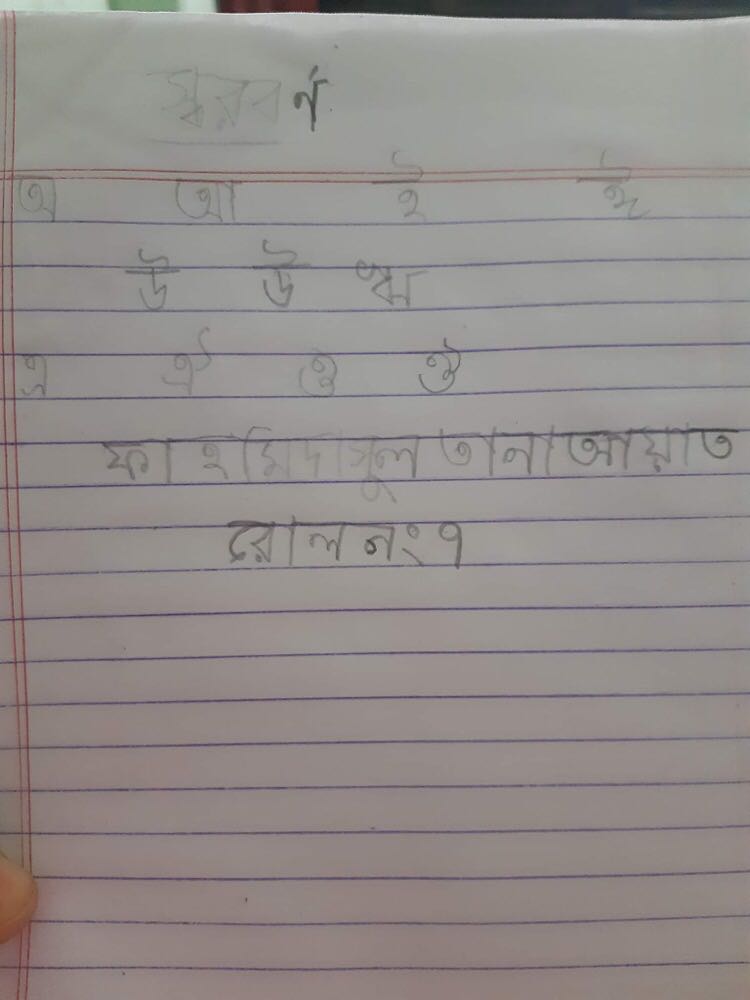 স্বরবর্ণ
অ আ ই ঈ
উ উ ঋ
এ ঐ ও ঔ
ফাহমিদা সুলতানা আয়াত
রোল নং ৭